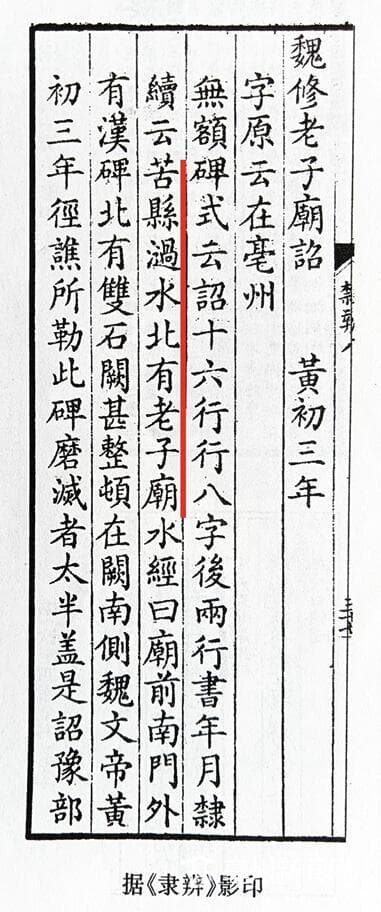 魏修老子廟詔　黃初三年
字原云在亳州
無額碑式云詔十六行行八字後兩行書年月隸
續云苦縣過水北有老子廟水經曰廟前南門外
有漢碑北有雙石闕甚整頓在闕南側魏文帝黃
初三年徑譙所勒此碑磨滅者太半盖是詔豫部
据《隶辨》影印